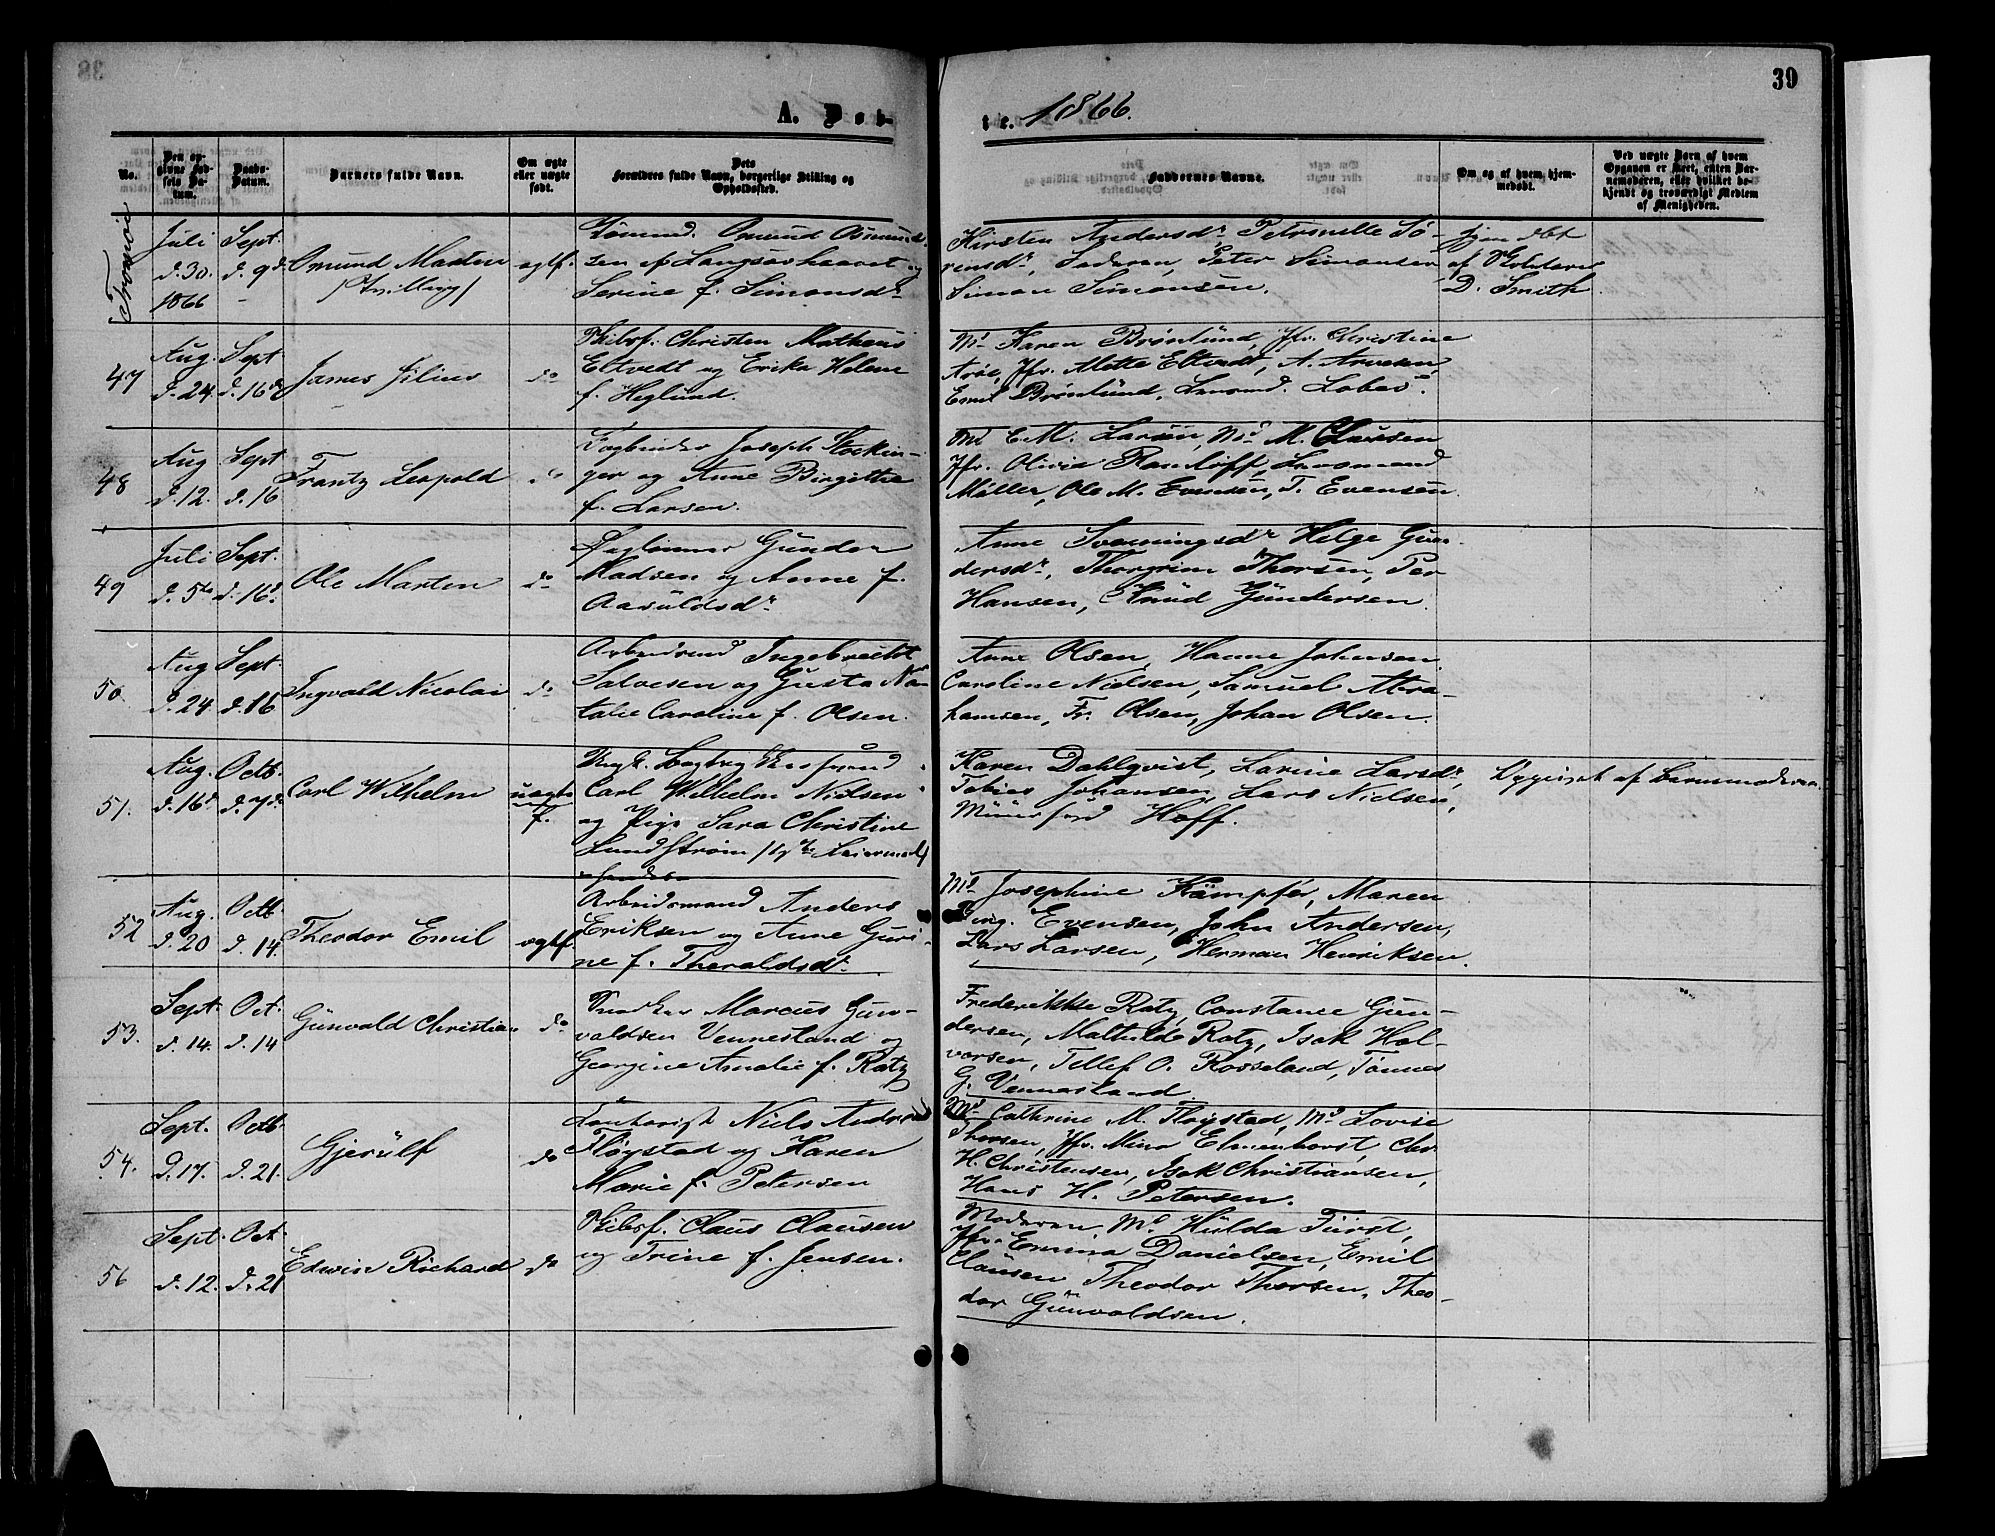 39
A. Døb-
te. 1866.
No.
Den op-
givne Fød-
sels Da-
tum.
Daabs-
Datum.
Barnets fulde Navn.
Om ægte
eller uægte
født.
Dets
Forældres fulde Navn, borgerlige Stilling og
Opholdssted.
Faddernes Navne.
Om og af hvem hjem-
medøbt.
Ved uægte Barn af hvem
Opgaven er skeet, enten Bar-
nemoderen, eller hvilket be-
kjendt og troværdigt Medlem
af Menigheden.
Tromøe
Juli
d. 30.
1866
Sept.
d. 9d.
Omund Marten
/Tvilling/
ægtf.
Sømand. Omund Osmund-
sen af Langsævhaavet og
Serine f. Simonsdr
Kirsten Andersdr, Petronelle Sø-
rensdr, Faderen, Peter Simonsen
Simon Simonsen.
hjemdbt
af
D. Smith
47
Aug.
d. 24.
Sept
d. 16de
James Julius
do
Skibsf. Christen Matheus
Eltvedt og Erika Helene
f. Heglund.
Md Karen Brønlund, Jfr. Christine
Aröe, Jfr. Mette Eltvedt, A. Arvesen,
Emil Brønlund,
48
Aug
d. 12.
Sept
d. 16
Frantz Leopold
do
Bogbinder Joseph Stockin-
ger og Anne Birgitte
f. Larsen.
Md E. M. Larsen, Md M. Claussen
Jfr. Olivia Ramlöff,
Møller, Ole M. Evensen, T. Evensen.
49
Juli
d. 5te
Sept.
d. 16d.
Ole Marten
do
Daglønner Gunder
Madsen og Anne f.
Aasuldsdr
Anne Svenningsdr Helge Gun-
dersdr, Thorgrim Thorsen, Per
Hansen, Knud Gundersen.
50.
Aug
d. 24
Sept.
d. 16
Ingvald Nicolai
do
Arbeidsmd Ingebrecht
Salvesen og Gusta Na-
talie Caroline f. Olsen.
Anne Olsen, Hanne Johnsen.
Caroline Nielsen, Samuel Abra-
hamsen, Fr. Olsen, Johan Olsen.
51.
Aug.
d. 16d
Octb.
d. 7de
Carl Wilhelm
uægte
f.
Ungk.
Carl Wilhelm Nielsen
og Pige Sara Christine
Lundstrøm
Karen Dahlqvist, Larine Larsdr,
Tobias Johansen, Lars Nielsen,
Hoff.
Opgivet af Barnemoderen.
52
Aug.
d. 20
Octb.
d. 14.
Theodor Emil
ægtf.
Arbeidsmand Anders
Eriksen og Anne Guri-
ne f. Theraldsdr.
Md Josephine Kämpfer, Maren
Ing. Evensen, John Andersen,
Lars Larsen, Herman Henriksen.
53.
Sept.
d. 14.
Oct.
d. 14
Gunvald Christian
do
Snedker Marcus Gun-
valdsen Vennesland og
Georgine Amalie f. Ratz
Frederikke Ratz, Constance Gun-
dersen, Mathilde Ratz, Isak Hal-
vorsen, Tellef O. Rosseland, Tønnes
G. Vennesland.
54.
Sept.
d. 17.
Octb.
d. 21.
Gjerulf
do
Niels Andreas
Fløystad og Karen
Marie f. Petersen
Md Cathrine M. Fløystad, Md Lovise
Thorsen, Jfr. Mina Elmenhorst, Chr.
H. Christensen, Isak Christiansen,
Hans H. Petersen.
56
Sept.
d. 12.
Oct.
d. 21
Edwin Richard
do
Skibsf. Claus Clausen
og Trine f. Jensen.
Moderen, Md Hulda Fürst,
Jfr. Emma Danielsen, Emil
Clausen Theodor Thorsen, Theo-
dor Gunvaldsen.